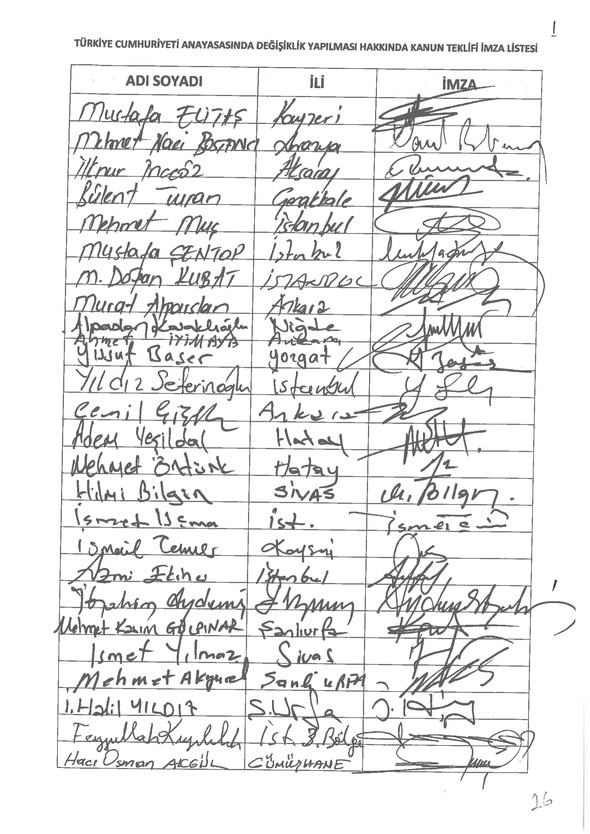 1
TÜRKİYE CUMHURİYETİ ANAYASASINDA DEĞİŞİKLİK YAPILMASI HAKKINDA KANUN TEKLİFİ İMZA LİSTESİ
ADI SOYADI İLİ İMZA
Mustafa ELİTAŞ Kayseri
Mehmet Naci BOSTANCI Amasya
İlknur İnceöz Aksaray
Bülent Turan Çanakkale
Mehmet Muş İstanbul
Mustafa ŞENTOP İstanbul
M. Doğan KUBAT İSTANBUL
Murat Alparslan Ankara
Alpaslan Kavaklıoğlu Niğde
Ahmet İYİMAYA Ankara
Yusuf Başer Yozgat
Yıldız Seferinoğlu İstanbul
Cemil Ankara
Adem Yeşildal Hatay
Mehmet Öntürk Hatay
Hilmi Bilgin SİVAS H. Bilgin.
İsmet Uçma İst.
İsmail Tamer Kayseri
Azmi Ekinci İstanbul
İbrahim Aydemir Erzurum
Mehmet Kasım GÜLPINAR Şanlıurfa
İsmet Yılmaz Sivas
Mehmet Akyürek Şanlı URFA
İ. Halil YILDIZ Ş. Urfa
Feyzullah Kıyıklık İst 3. Bölge
Hacı Osman AKGÜL GÜMÜŞHANE
26